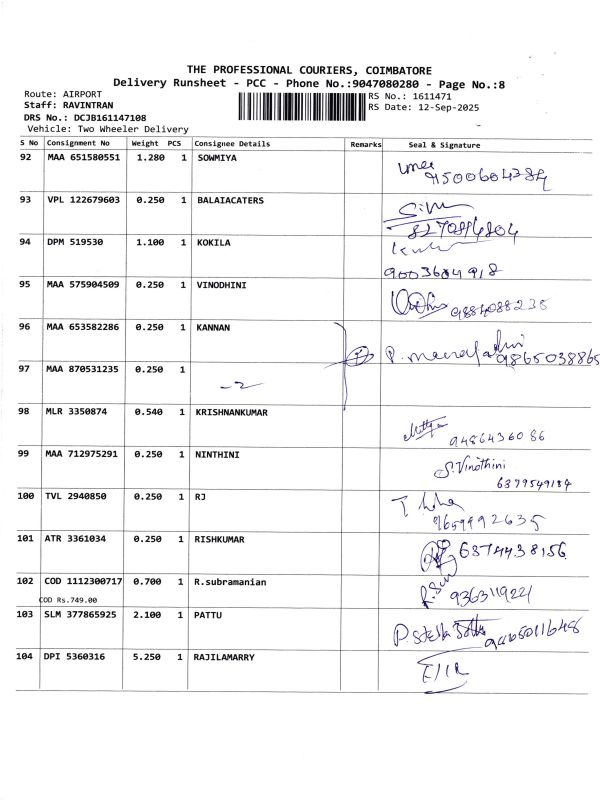 THE PROFESSIONAL COURIERS, COIMBATORE
Delivery Runsheet - PCC - Phone No.:9047080280 - Page No.:8
Route: AIRPORT RS No.: 1611471
Staff: RAVINTRAN RS Date: 12-Sep-2025
DRS No.: DCJB161147108
Vehicle: Two Wheeler Delivery
S No Consignment No Weight PCS Consignee Details Remarks Seal & Signature
92 MAA 651580551 1.280 1 SOWMIYA
93 VPL 122679603 0.250 1 BALAIACATERS
94 DPM 519530 1.100 1 KOKILA
9003604918
95 MAA 575904509 0.250 1 VINODHINI
9884088235
96 MAA 653582286 0.250 1 KANNAN
9865038865
97 MAA 870531235 0.250 1
98 MLR 3350874 0.540 1 KRISHNANKUMAR
9486436086
99 MAA 712975291 0.250 1 NINTHINI
S.Vinothini
6379549184
100 TVL 2940850 0.250 1 RJ
9659992635
101 ATR 3361034 0.250 1 RISHKUMAR
6374438156
102 COD 1112300717 0.700 1 R.subramanian
COD Rs.749.00
9363119221
103 SLM 377865925 2.100 1 PATTU
P. Stella
104 DPI 5360316 5.250 1 RAJILAMARRY